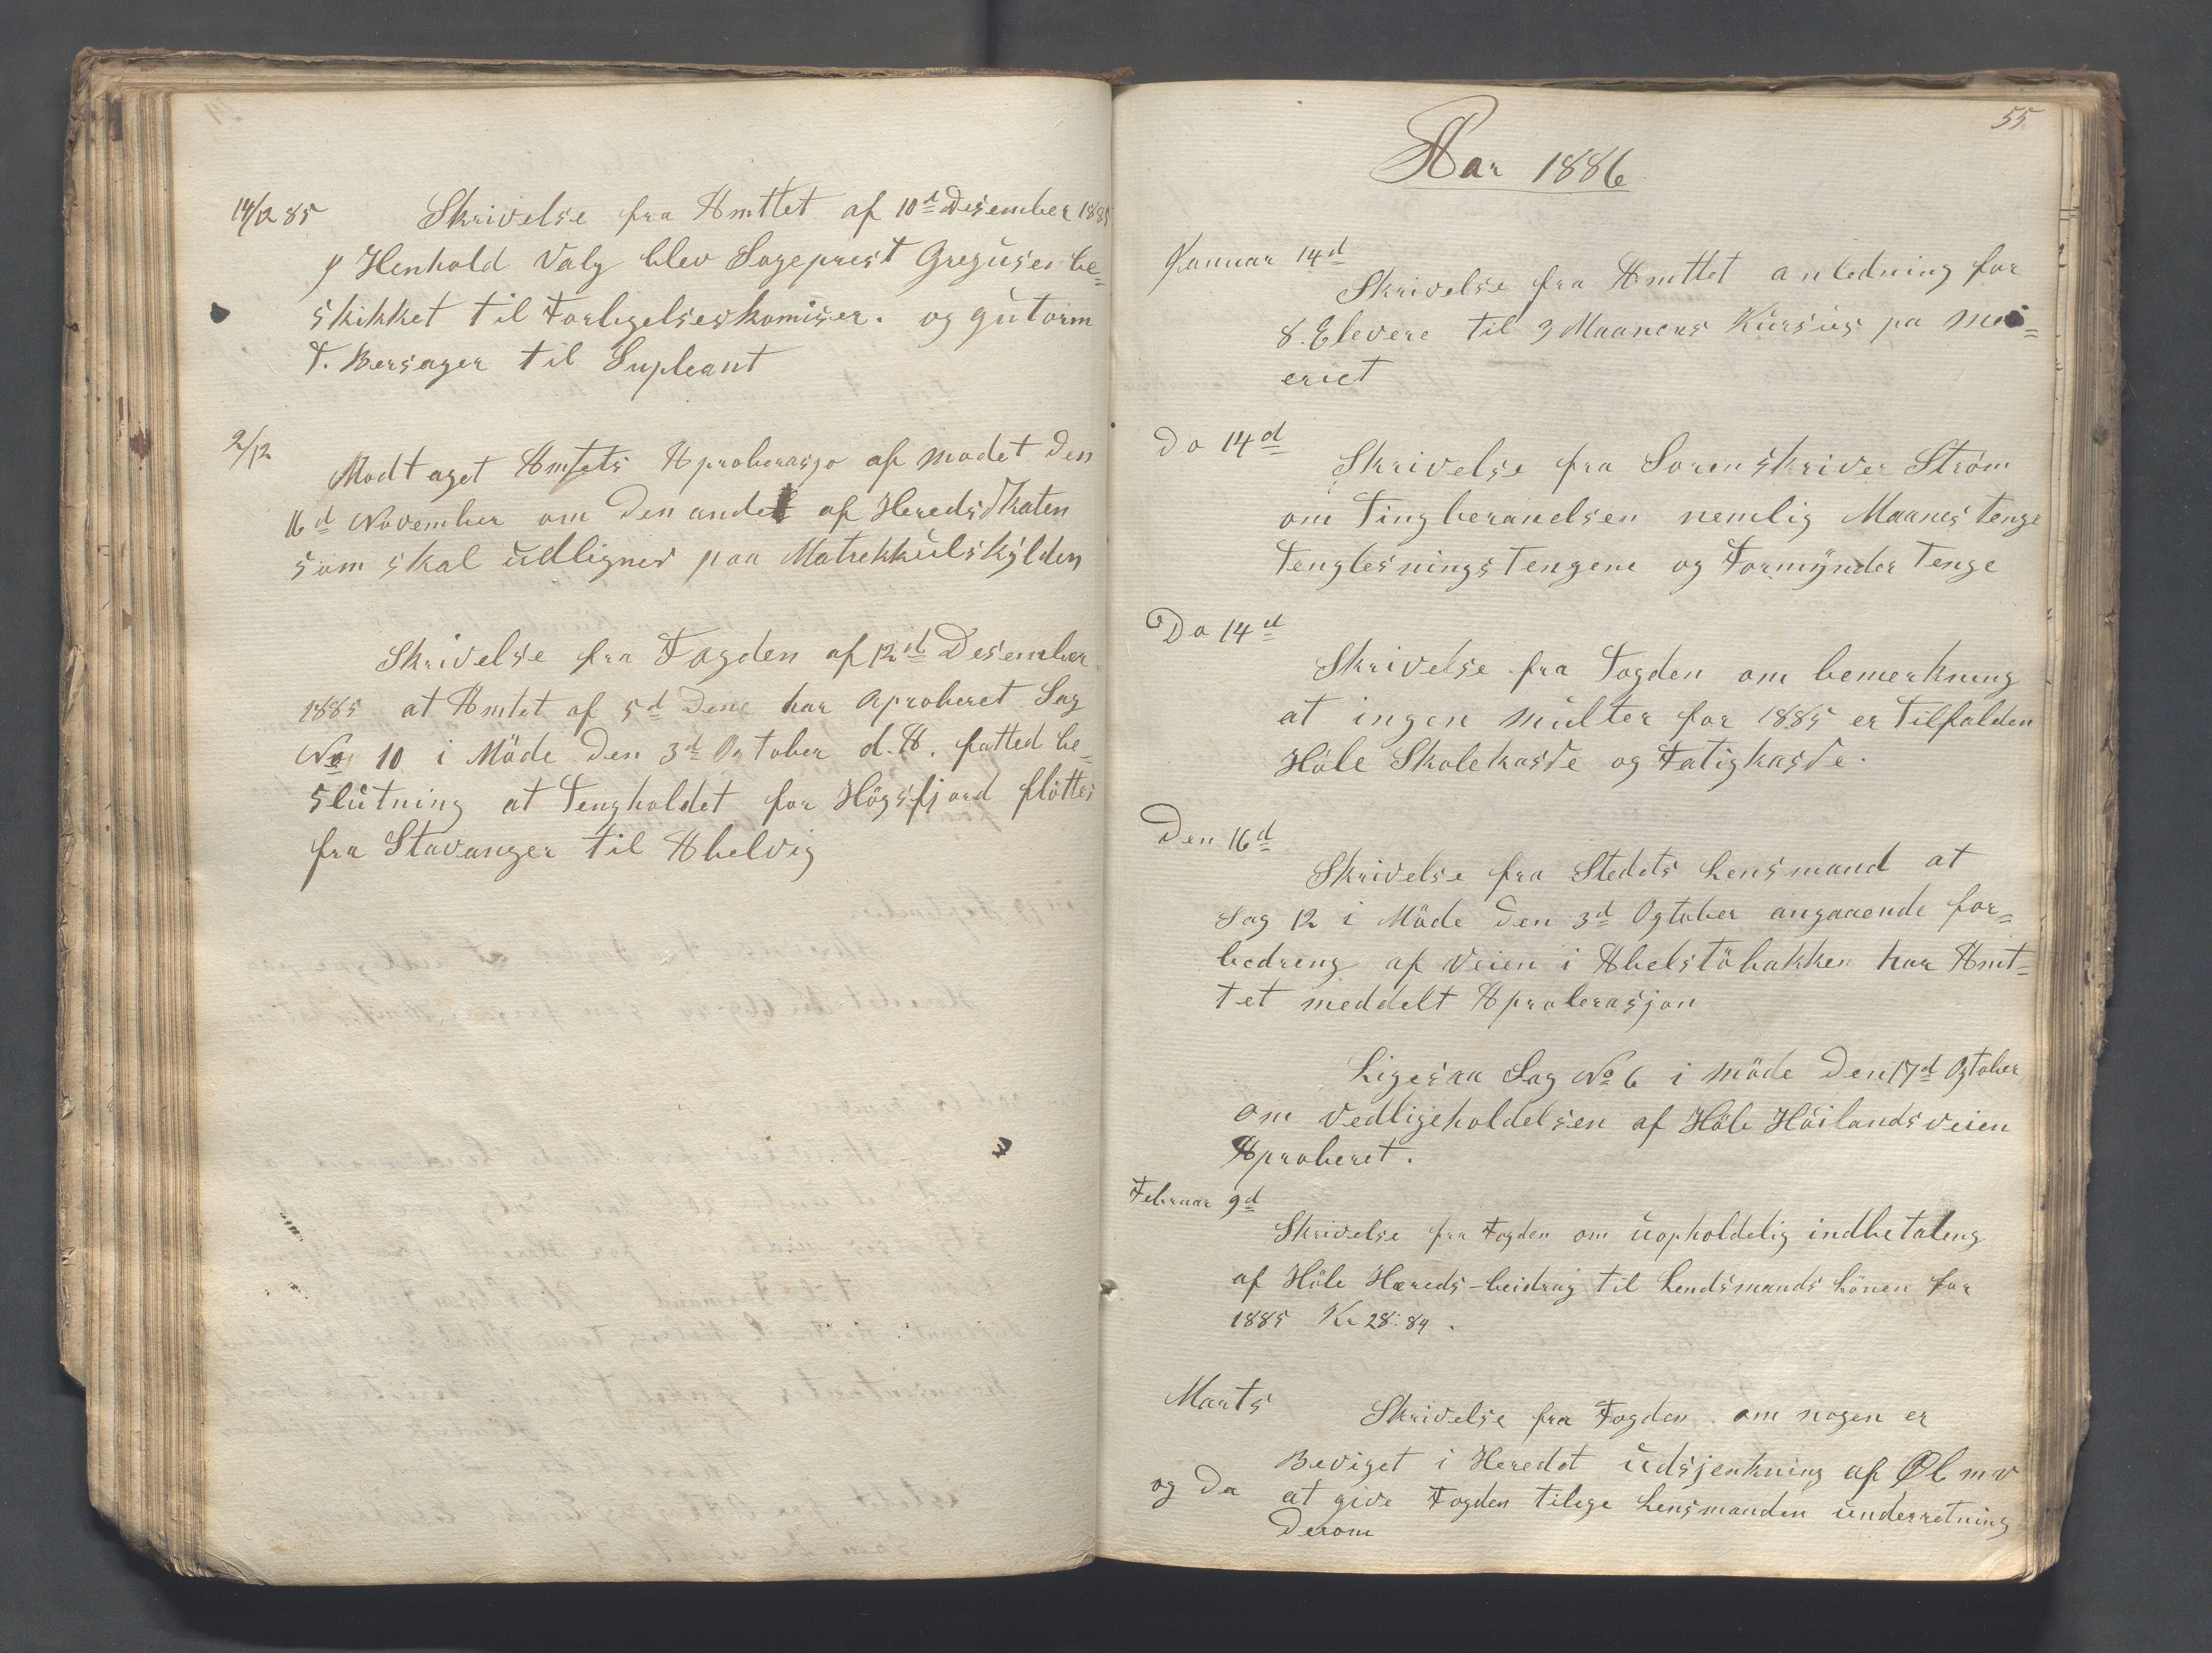 14/12 85 Skrivelse fra Amttet af 10d Desember 1885
y Henhold Valg blev Sogeprest Greguser be=
skikket til Forligelseskomiser. og gutorm
T. Bersager til Supleant
2/12
Modtaget Amtets Aproberasjo af mødet Den
16d November om Den andel af Hereds Skaten
som skal udlignes paa Matrekkulskylden
Skrivelse fra Fogden af 12d Desember
1885 at Amtet af 5d Dene har Aproberet Sag
No 10 i Möde Den 3d Ogtober d. A. fatted be=
slutning at Tengholdet for Högsfjord flöttes
fra Stavanger til Ahelvig
55
Aar 1886
Januar 14d
Skrivelse fra Amttet anledning for
8. Elevere til 3 Maanens Kursus pa Mei=
eriet
Do 14d
Skrivelse fra Sorenskriver Ström
om Tingberamelsen nemlig Maanes tenge
Tenglesningstengene og Formynder tenge
Do 14d
Skrivelse fra Fogden om bemerkning
at ingen multer for 1885 er Tilfalden
Höle Skolekasse og Fatigkasse.
Den 16d
Skrivelse fra Stedets Lensmand at
Sag 12 i Möde Den 3d Ogtober angaaende for=
bedreng af Veien i Ahelstöbakken har Amt=
tet meddelt Aproberasjon
Ligesaa Sag No 6 i möde Den 17d Ogtober
om Vedligeholdelsen af Höle Höilandsveien
Aproberet.
Februar 9d
Skrivelse fra Fogden om uopholdelig indbetaleng
af Höle Hæreds-beidrag til Lendsmands Lönen for
1885 Kr 28:84.
Marts Skrivelse fra Fogden om nogen er
Beviget i Heredet udsjenkning af Øl m v
og Da at give Fogden tilige Lensmanden underretning
Derom